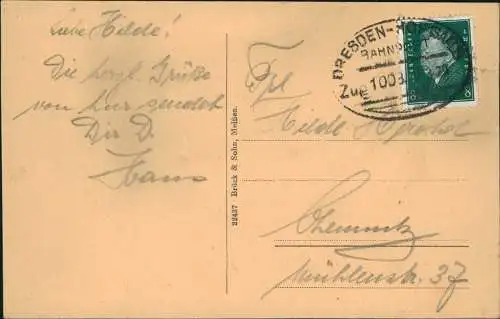 Liebe Hilde!
Die herzl. Grüße
von hier sendet
Dir D.
Hans
22437 Brück & Sohn, Meißen.
DRESDEN-
BAHNPOST
Zug 1003
8
Frl.
Hilde
Chemnitz
Mühlenstr. 37